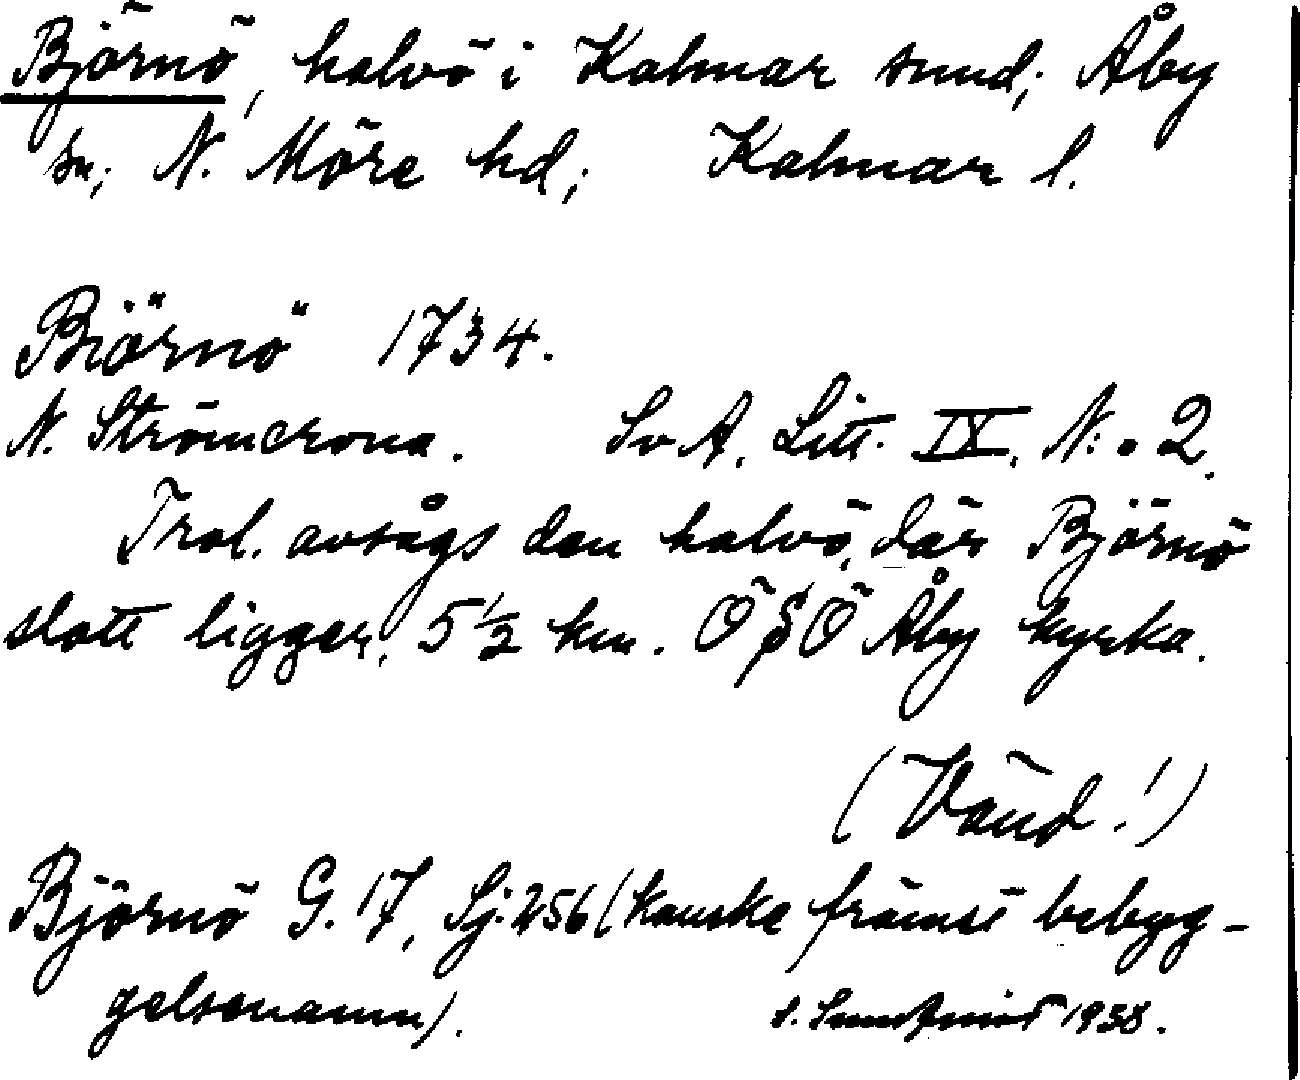 Björnö, halvö i Kalmar sund; Åby
sn; N. Möre hd; Kalmar l.
Biörnö 1734.
N. Strömcrona. Sv A. Litt. IX. N:o 2.
Trol. avsågs den halvö, där Björnö
slott ligger, 5 1/2 km. Ö§Ö Åby kyrka.
(Vänd!)
Björnö G. 17, Sj. 256 (kanske främst bebyg-
gelsenamn).
1938.